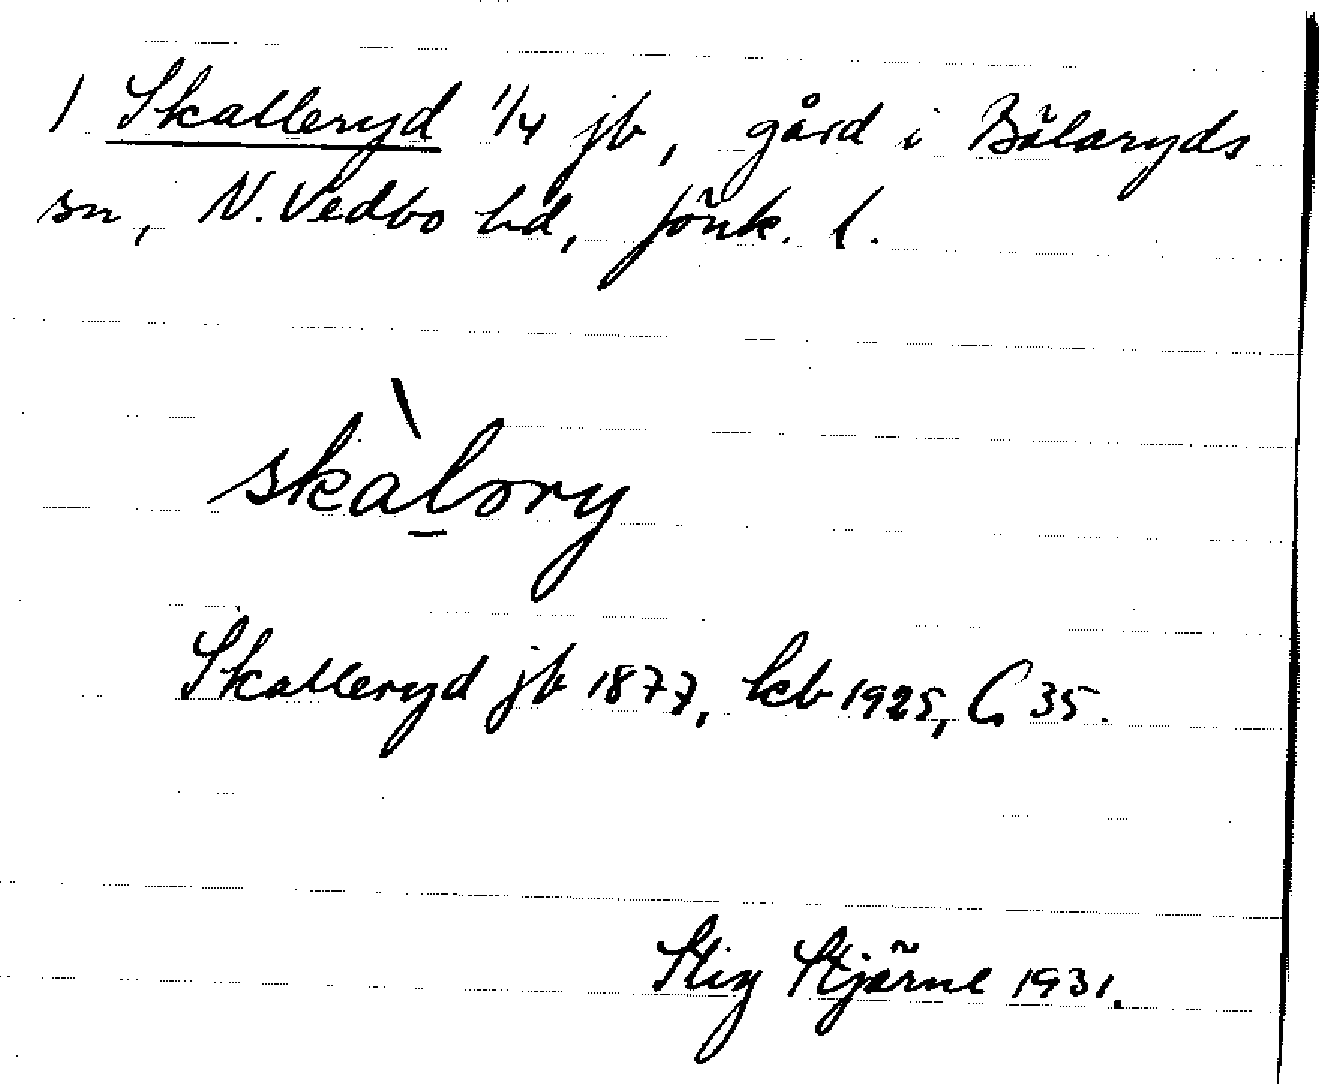 1 Skalleryd 1/4 jb, gård i Bälaryds
sn, N. Vedbo hd, Jönk. l.
skàl̠ɔry
Skalleryd jb 1877, kb 1925, G 35.
Stig Stjärne 1931.